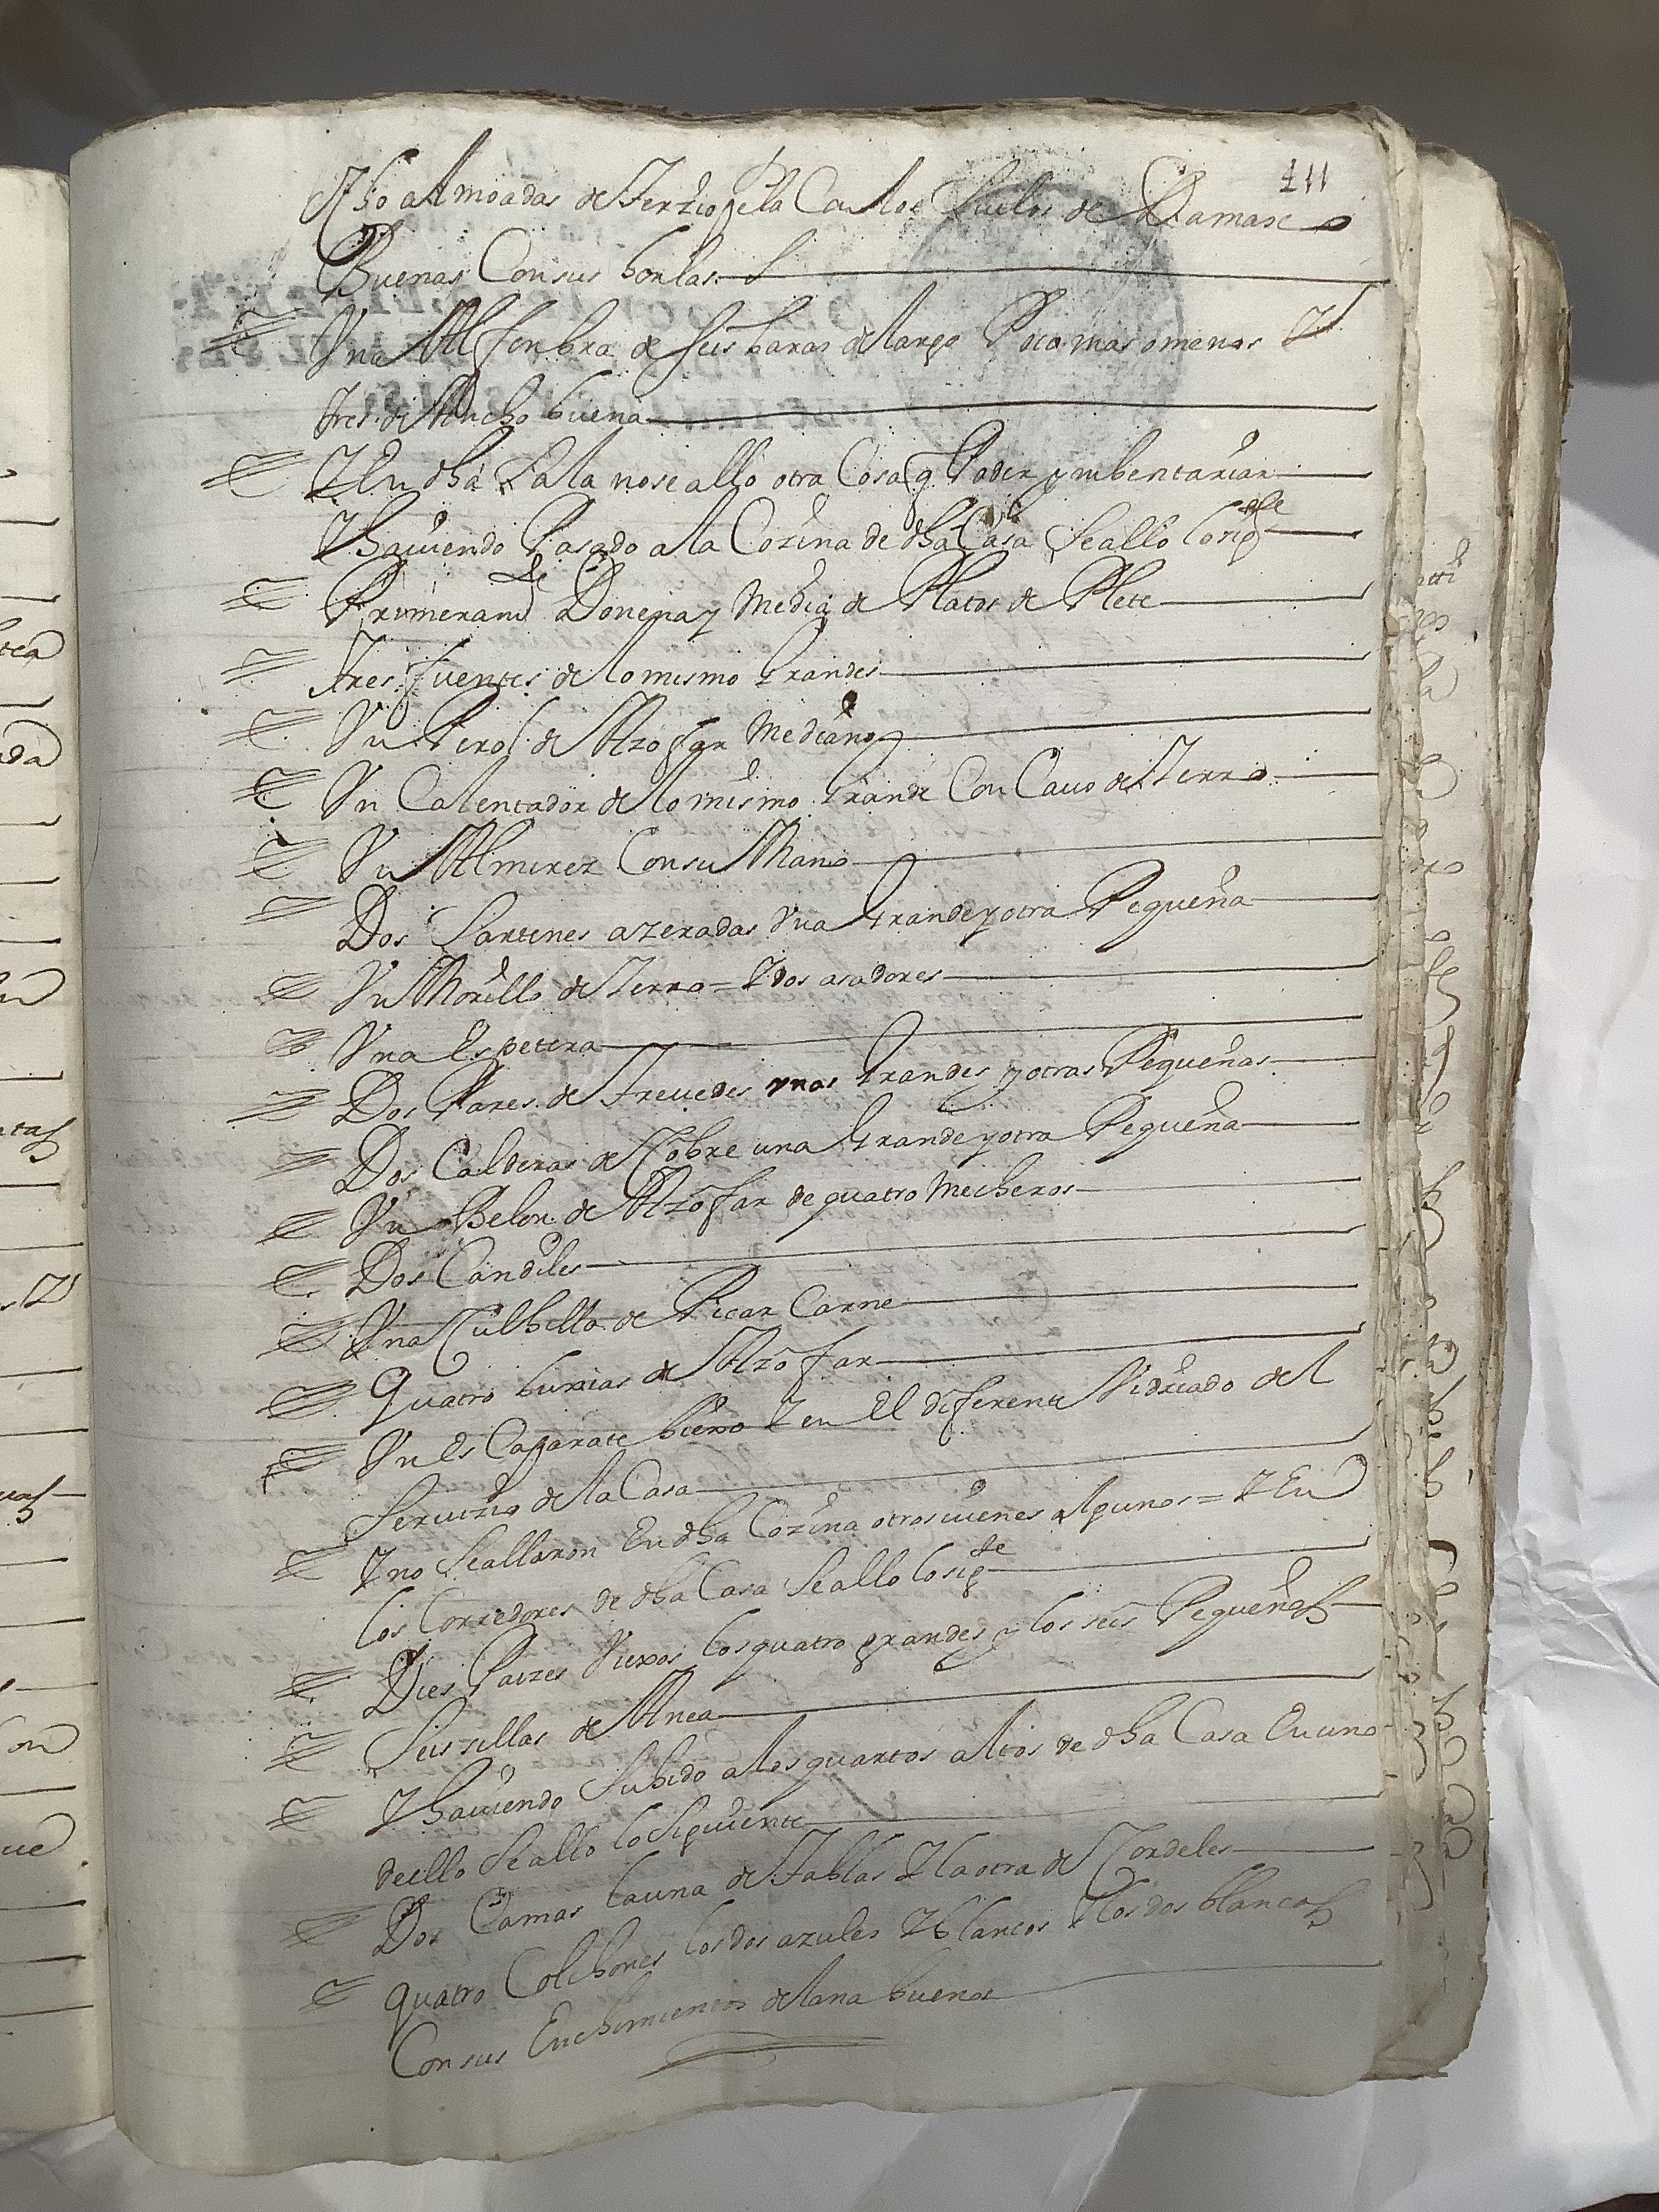 111
Ocho almoadas de Terziopela Con los Suelos de Damasco
Buenas Con sus borlas
Vna Alfonbra de seis baras de largo Poco mas o menos Y
tres de Ancho buena
Y En dha Sala no se allo otra Cosa q Poder ymbentariar
Y hauiendo Pasado a la Cozina de dha Casa se allo lo sigte
Primeramte Donena y Media de Platos de Plete
Tres fuentes de lo mismo Grandes
Vn Perol de Azofar Mediano
Vn Calentador de lo mismo Grande Con Cauo de Yerro
Vn Almirez Con su Mano
Dos Sartenes azeradas Vna Grande y otra Pequeña
Vn Morillo de Yerro = Y dos asadores
Vna Espetera
Dos Pares de Treuedes vnas Grandes y otras Pequeñas
Dos Calderas de Cobre una Grande y otra Pequeña
Vn Belon de Azofar de quatro Mecheros
Dos Candiles
Vna Cuchilla de Picar Carne
Quatro buxias de Azofar
Vn Escaparate biexo Y en El diferente Vidriado del
Seruizio de la Casa
Y no se allaron En dha Cozina otros uienes algunos = Y En
los Corredores de dha Casa se allo lo sigte
Dies Paizes Viexos los quatro grandes y los seis Pequeños
Seis sillas de Anea
Y hauiendo Subido a los quartos altos de dha Casa En uno
de ello se allo lo siguiente
Dos Camas la una de Tablas Y la otra de Cordeles
quatro Colchones los dos azules Y blancos Y los dos blancos
Con sus Enchimientos de lana buenos